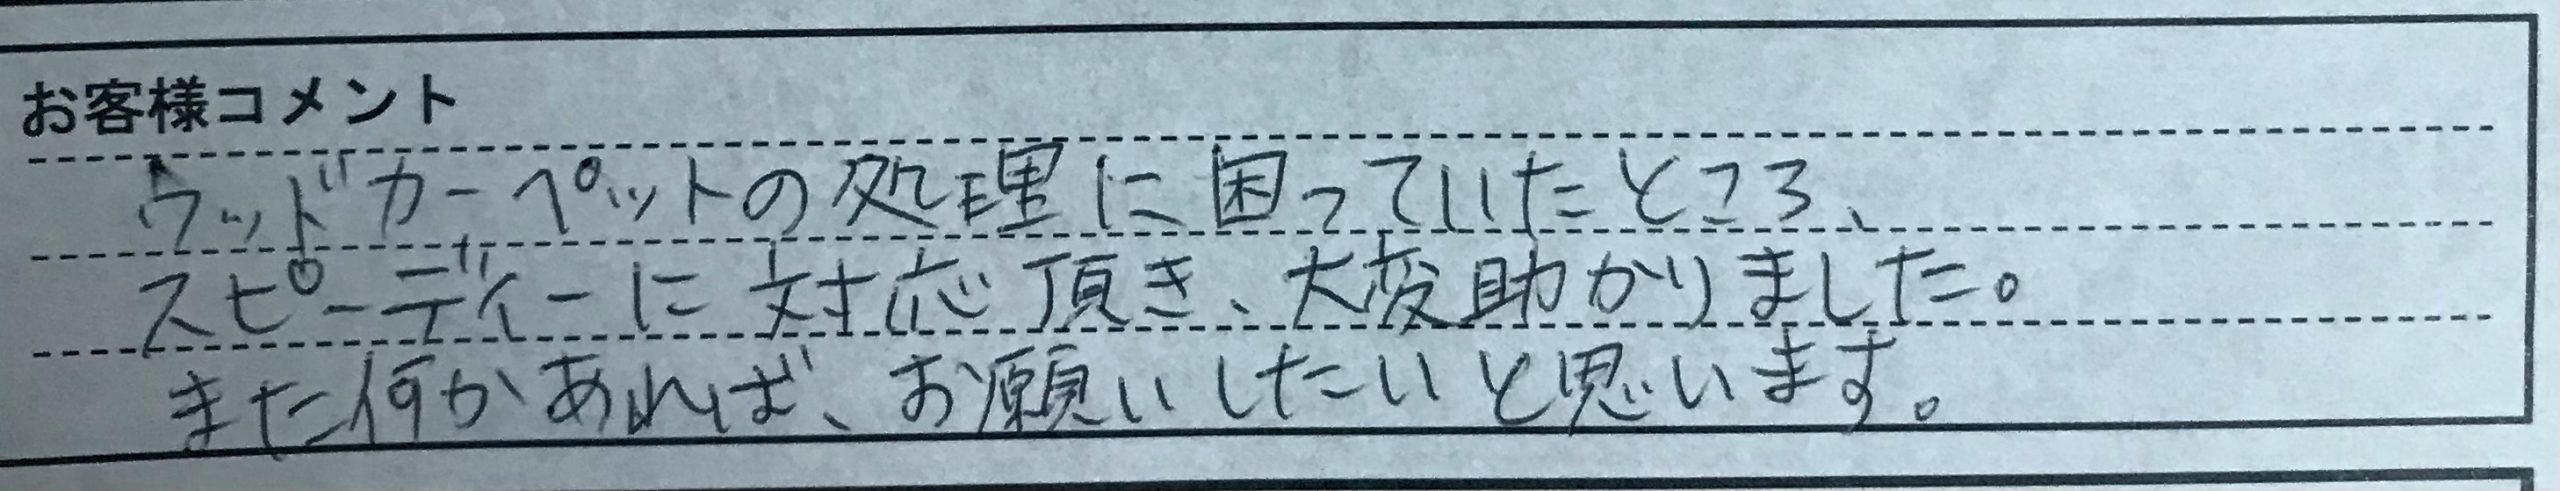 お客様コメント
ウッドカーペットの処理に困っていたところ、
スピーディーに対応頂き、大変助かりました。
また何かあれば、お願いしたいと思います。